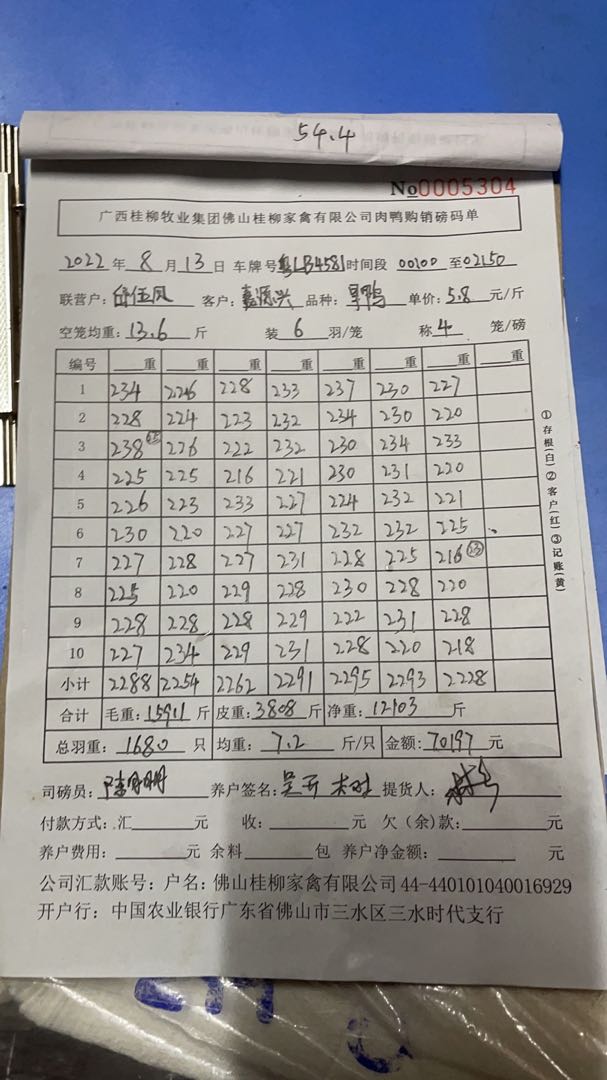 54.4
No0005304
广西桂柳牧业集团佛山桂柳家禽有限公司肉鸭购销磅码单
2022年 8 月 13 日 车牌号粤LB4581时间段 00100 至02150
联营户: 伍凤 客户: 嘉源兴 品种: 旱鸭 单价: 5.8 元/斤
空笼均重: 13.6 斤 装 6 羽/笼 称 4 笼/磅
编号 重 重 重 重 重 重 重 重
1 234 226 228 233 237 230 227
2 228 224 223 232 234 230 220
3 238 226 222 232 230 234 233
4 225 225 216 221 230 231 220
5 226 223 233 227 224 232 221
6 230 220 227 227 232 232 225
7 227 228 227 231 228 225 216 23
8 225 220 229 228 230 228 220
9 228 228 228 229 222 231 228
10 227 234 229 231 228 220 218
小计 2288 2254 2262 2291 2295 2293 2228
合计 毛重: 15911 斤 皮重: 3808 斤 净重: 12103 斤
总羽重: 1680 只 均重: 7.2 斤/只 金额: 70197 元
司磅员: 养户签名: 提货人:
付款方式: 汇 元 收: 元 欠(余)款: 元
养户费用: 元 余料 包 养户净金额: 元
公司汇款账号: 户名: 佛山桂柳家禽有限公司 44-440101040016929
开户行: 中国农业银行广东省佛山市三水区三水时代支行
①存根(白)②客户(红)③记账(黄)